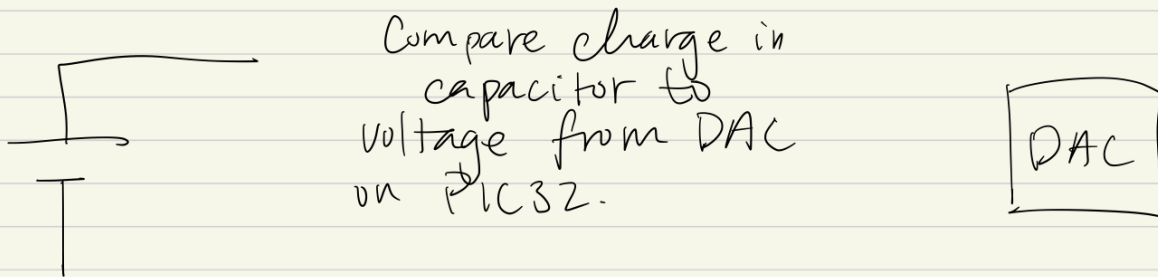 Compare charge in
capacitor to
voltage from DAC
on PIC32.
DAC